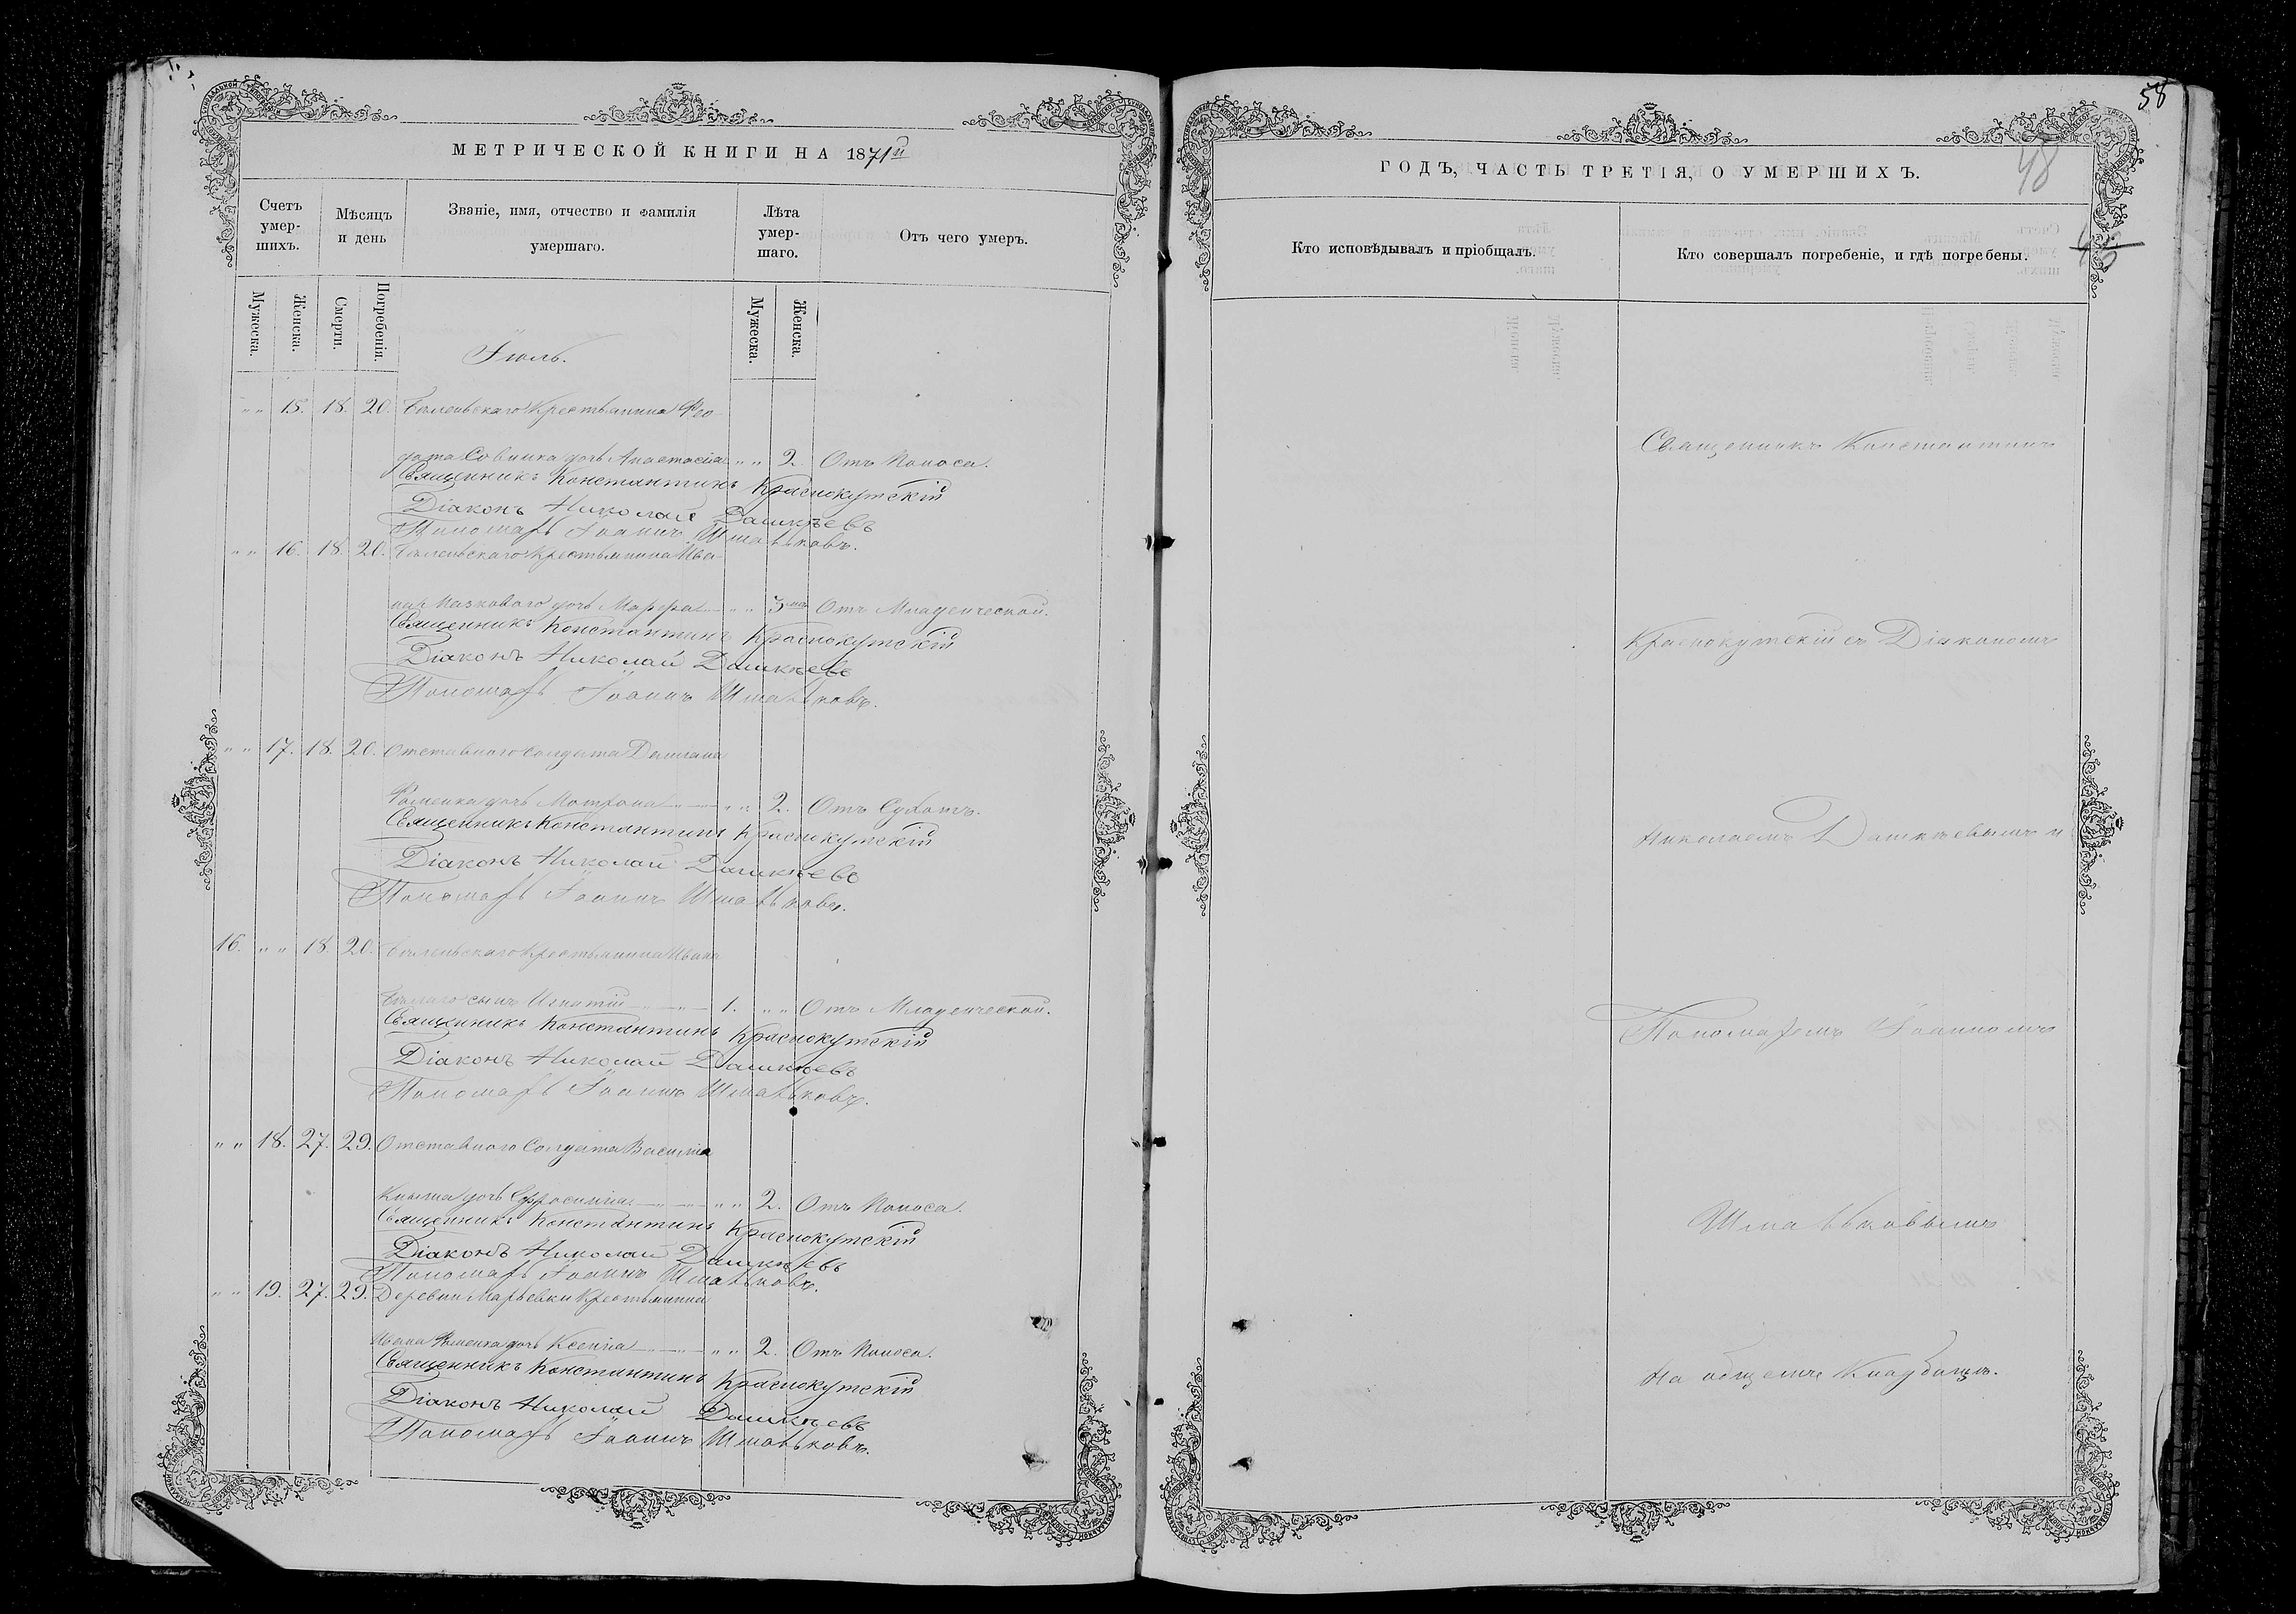 МЕТРИЧЕСКОЙ КНИГИ НА 1871й
Счетъ умер-шихъ.
Мѣсяцъ и день
Званіе, имя, отчество и фамилія умершаго.
Лѣта умер-шаго.
Отъ чего умеръ.
Мужеска. Женска. Смерти. Погребенія. Мужеска. Женска.
Іюль.
„ „ 15. 18. 20. Крестьянина Ѳео
дота дочь Анастасія „ „ 2. Отъ Поноса.
Священникъ Константинъ Краснокутскій
Діаконъ Николай Дашкѣевъ
Пономарь Іоаннъ Шматьковъ.
„ „ 16. 18. 20. Крестьянина Ива
на дочь Марфа „ „ Отъ Младенческой.
Священникъ Константинъ Краснокутскій
Діаконъ Николай Дашкѣевъ
Пономарь Іоаннъ Шматьковъ.
„ „ 17. 18. 20. Отставного Солдата Даміана
дочь Матрона „ „ 2. Отъ Сухотъ.
Священникъ Константинъ Краснокутскій
Діаконъ Николай Дашкѣевъ
Пономарь Іоаннъ Шматьковъ.
16. „ „ 18. 20. Крестьянина Ивана
сынъ Игнатій 1. „ „ Отъ Младенческой.
Священникъ Константинъ Краснокутскій
Діаконъ Николай Дашкѣевъ
Пономарь Іоаннъ Шматьковъ.
„ „ 18. 27. 29. Отставного Солдата Василія
дочь Ефросинія „ „ 2. Отъ Поноса.
Священникъ Константинъ Краснокутскій
Діаконъ Николай Дашкѣевъ
Пономарь Іоаннъ Шматьковъ.
„ „ 19. 27. 29. Деревни Марьевки Крестьянина
Ивана дочь Ксенія „ „ 2. Отъ Поноса.
Священникъ Константинъ Краснокутскій
Діаконъ Николай Дашкѣевъ
Пономарь Іоаннъ Шматьковъ.
58
48
ГОДЪ, ЧАСТЬ ТРЕТІЯ, О УМЕРШИХЪ.
Кто исповѣдывалъ и пріобщалъ.
Кто совершалъ погребеніе, и гдѣ погребены.
Священникъ Константинъ
Краснокутскій съ Діакономъ
Николаемъ Дашкѣевымъ и
Пономаремъ Іоанномъ
Шматьковымъ
На общемъ Кладбищѣ.